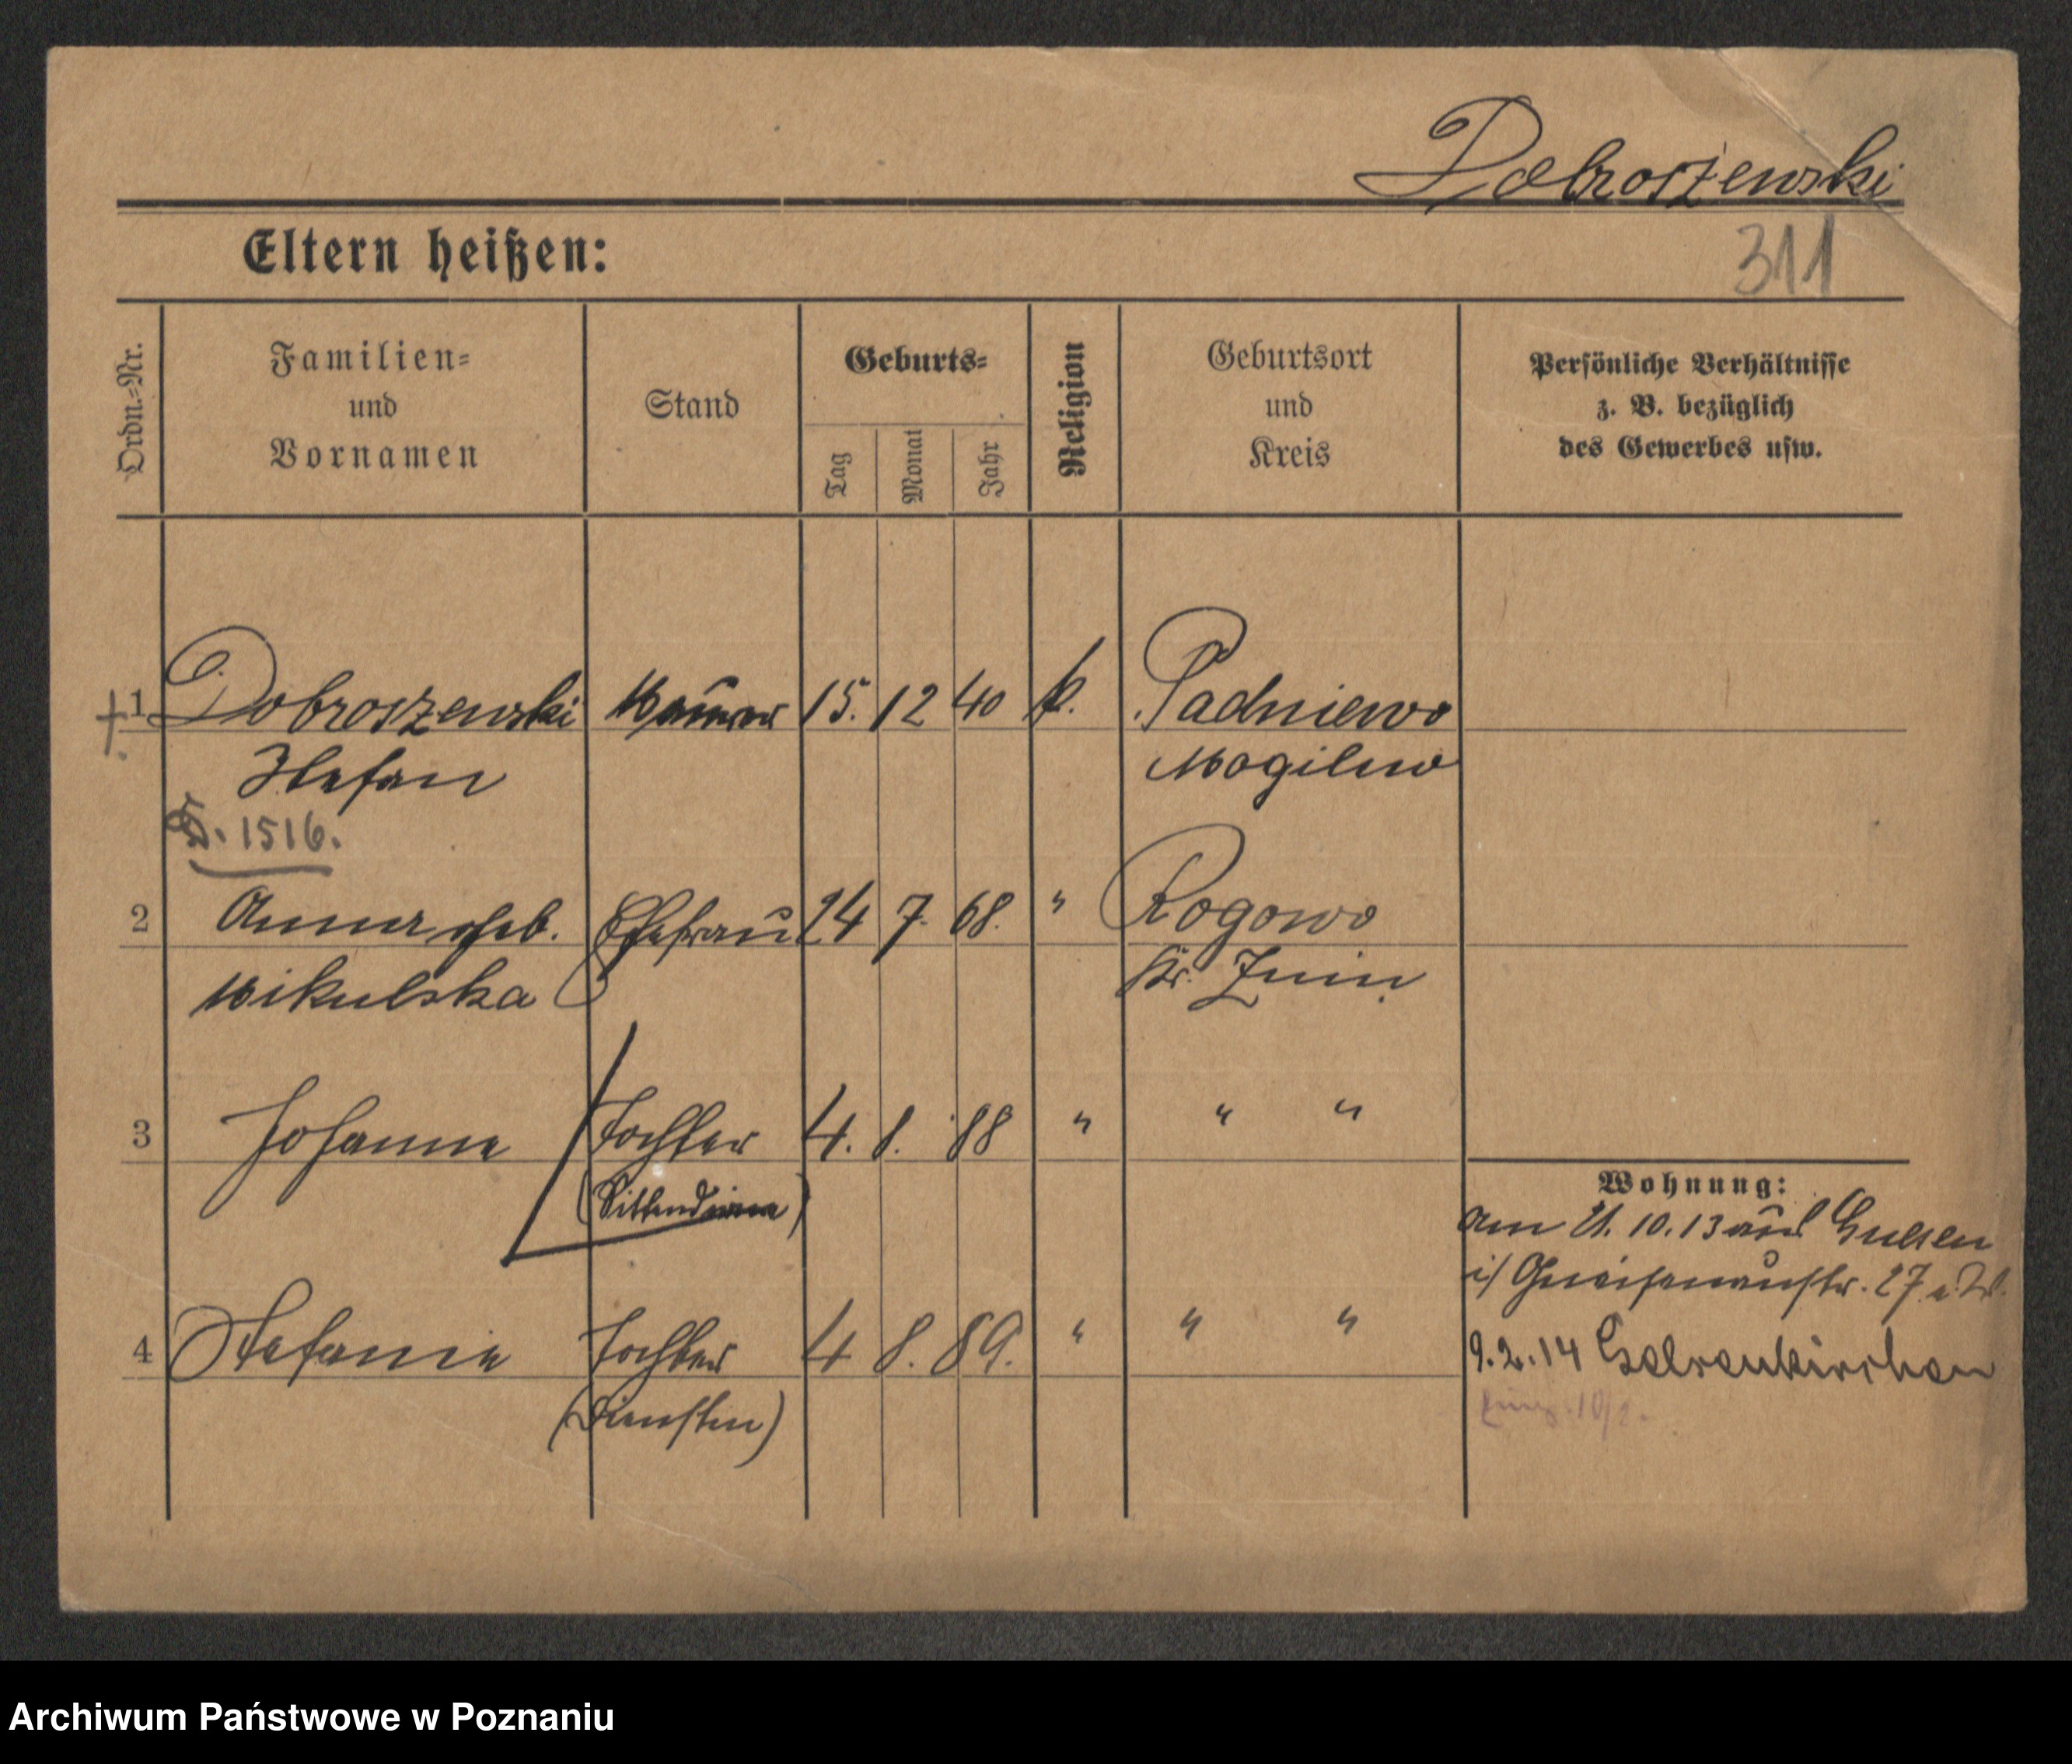 Dobroszewski
Eltern heißen:
311
Ordn.=Nr.
Familien=
und
Vornamen
Stand
Geburts=
Tag
Monat
Jahr
Religion
Geburtsort
und
Kreis
Persönliche Verhältnisse
z. B. bezüglich
des Gewerbes usw.
† 1 Dobroszewski Maurer 15. 12 40 k. Padniewo
Stefan Mogilno
1516.
2 Anna geb. Ehefrau 24 7. 68. " Rogowo
Mikulska Kr. Znin
3 Johanna Tochter 4. 8. 88 " " "
(Sittendirne)
Wohnung:
am 21. 10. 13 aus Gnesen
i/ Gneisenaustr. 27
4 Stefanie Tochter 4 8. 89. " " "
(Dienstm)
9. 2. 14 Gelsenkirchen
10/2.
Archiwum Państwowe w Poznaniu